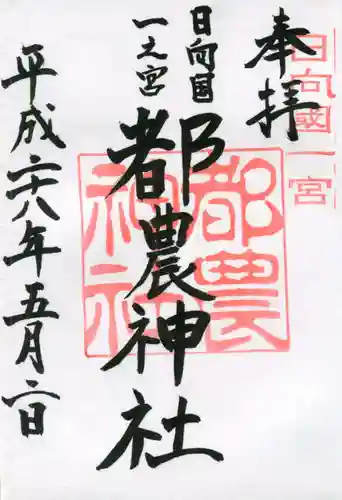 奉拝
日向國一宮
日向国
一之宮
都農神社
都農神社
平成二十八年五月二日